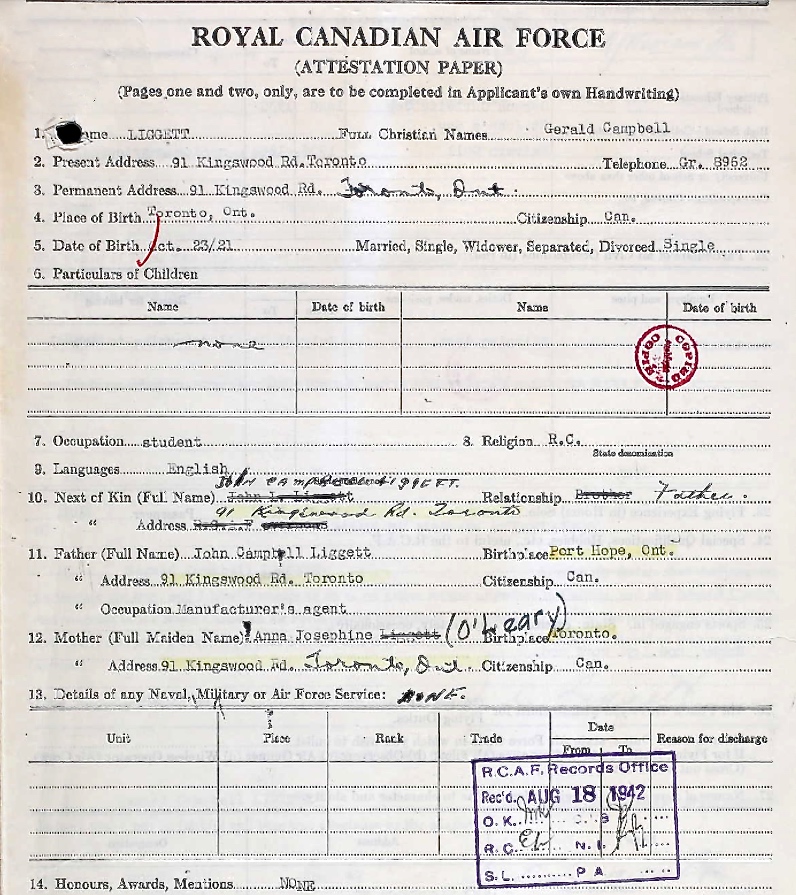 ROYAL CANADIAN AIR FORCE
(ATTESTATION PAPER)
(Pages one and two, only, are to be completed in Applicant's own Handwriting)
1. ame LIGGETT Full Christian Names Gerald Campbell
2. Present Address 91 Kingswood Rd. Toronto Telephone Gr. 8962
3. Permanent Address 91 Kingswood Rd. Toronto, Ont.
4. Place of Birth Toronto, Ont. Citizenship Can.
5. Date of Birth Oct. 23/21 Married, Single, Widower, Separated, Divorced Single
6. Particulars of Children
Name Date of birth Name Date of birth
none
COPIED COPIED
7. Occupation student 8. Religion R.C.
State denomination
9. Languages English
John Campbell LIGGETT.
10. Next of Kin (Full Name) John L. Liggett Relationship Brother Father.
91 Kingswood Rd. Toronto
" Address
11. Father (Full Name) John Campbell Liggett Birthplace Port Hope, Ont.
" Address 91 Kingswood Rd. Toronto Citizenship Can.
" Occupation Manufacturer's agent
12. Mother (Full Maiden Name) Anna Josephine Liggett (O'Leary) Birthplace Toronto.
" Address 91 Kingswood Rd. Toronto, Ont. Citizenship Can.
13. Details of any Naval, Military or Air Force Service: NONE.
Unit Place Rank Trade Date Reason for discharge
From To
R.C.A.F. Records Office
Rec'd. AUG 18 1942
O.K.
R.C. N.I.
S.L. P A
14. Honours, Awards, Mentions NONE